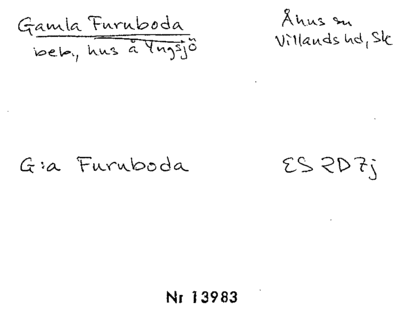 Gamla Furuboda
Åhus sn
beb., hus å Yngsjö
Villands hd, Sk
G:a Furuboda
ES 2D 7j
Nr 13983